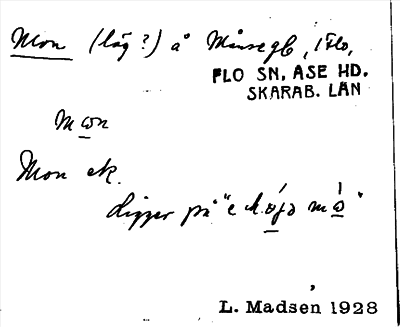 Mon (låg?) å Månsegb, i Flo,
FLO SN, ÅSE HD.
SKARAB. LÄN
mɷn
Mon ek.
Ligger på "e
L. Madsen 1928